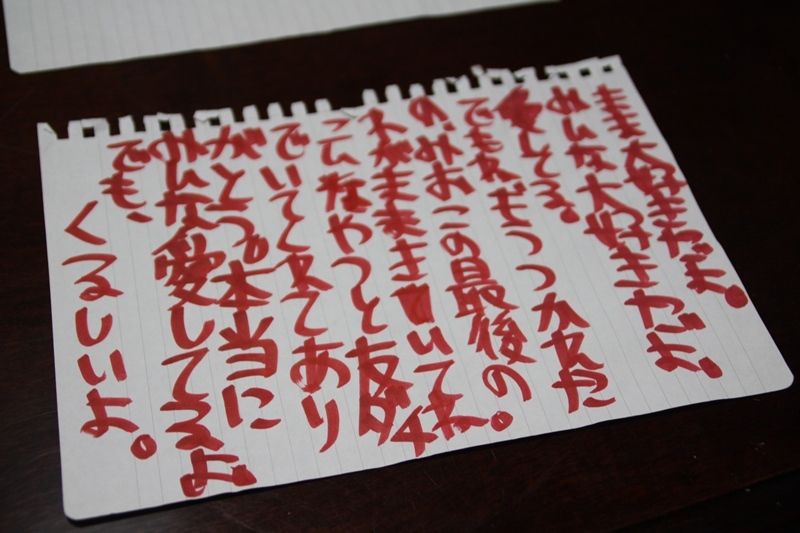 ママ大好きだよ。
みんな大好きだよ。
愛してる。
でもね、ぞうつかれた
の。みおこの最後の。
ネがままき❤いてね。
こんなやつと友ダ4
でいてくれてあり
がとう。本当に
みんな愛してるよ
でも、
くるしいよ。